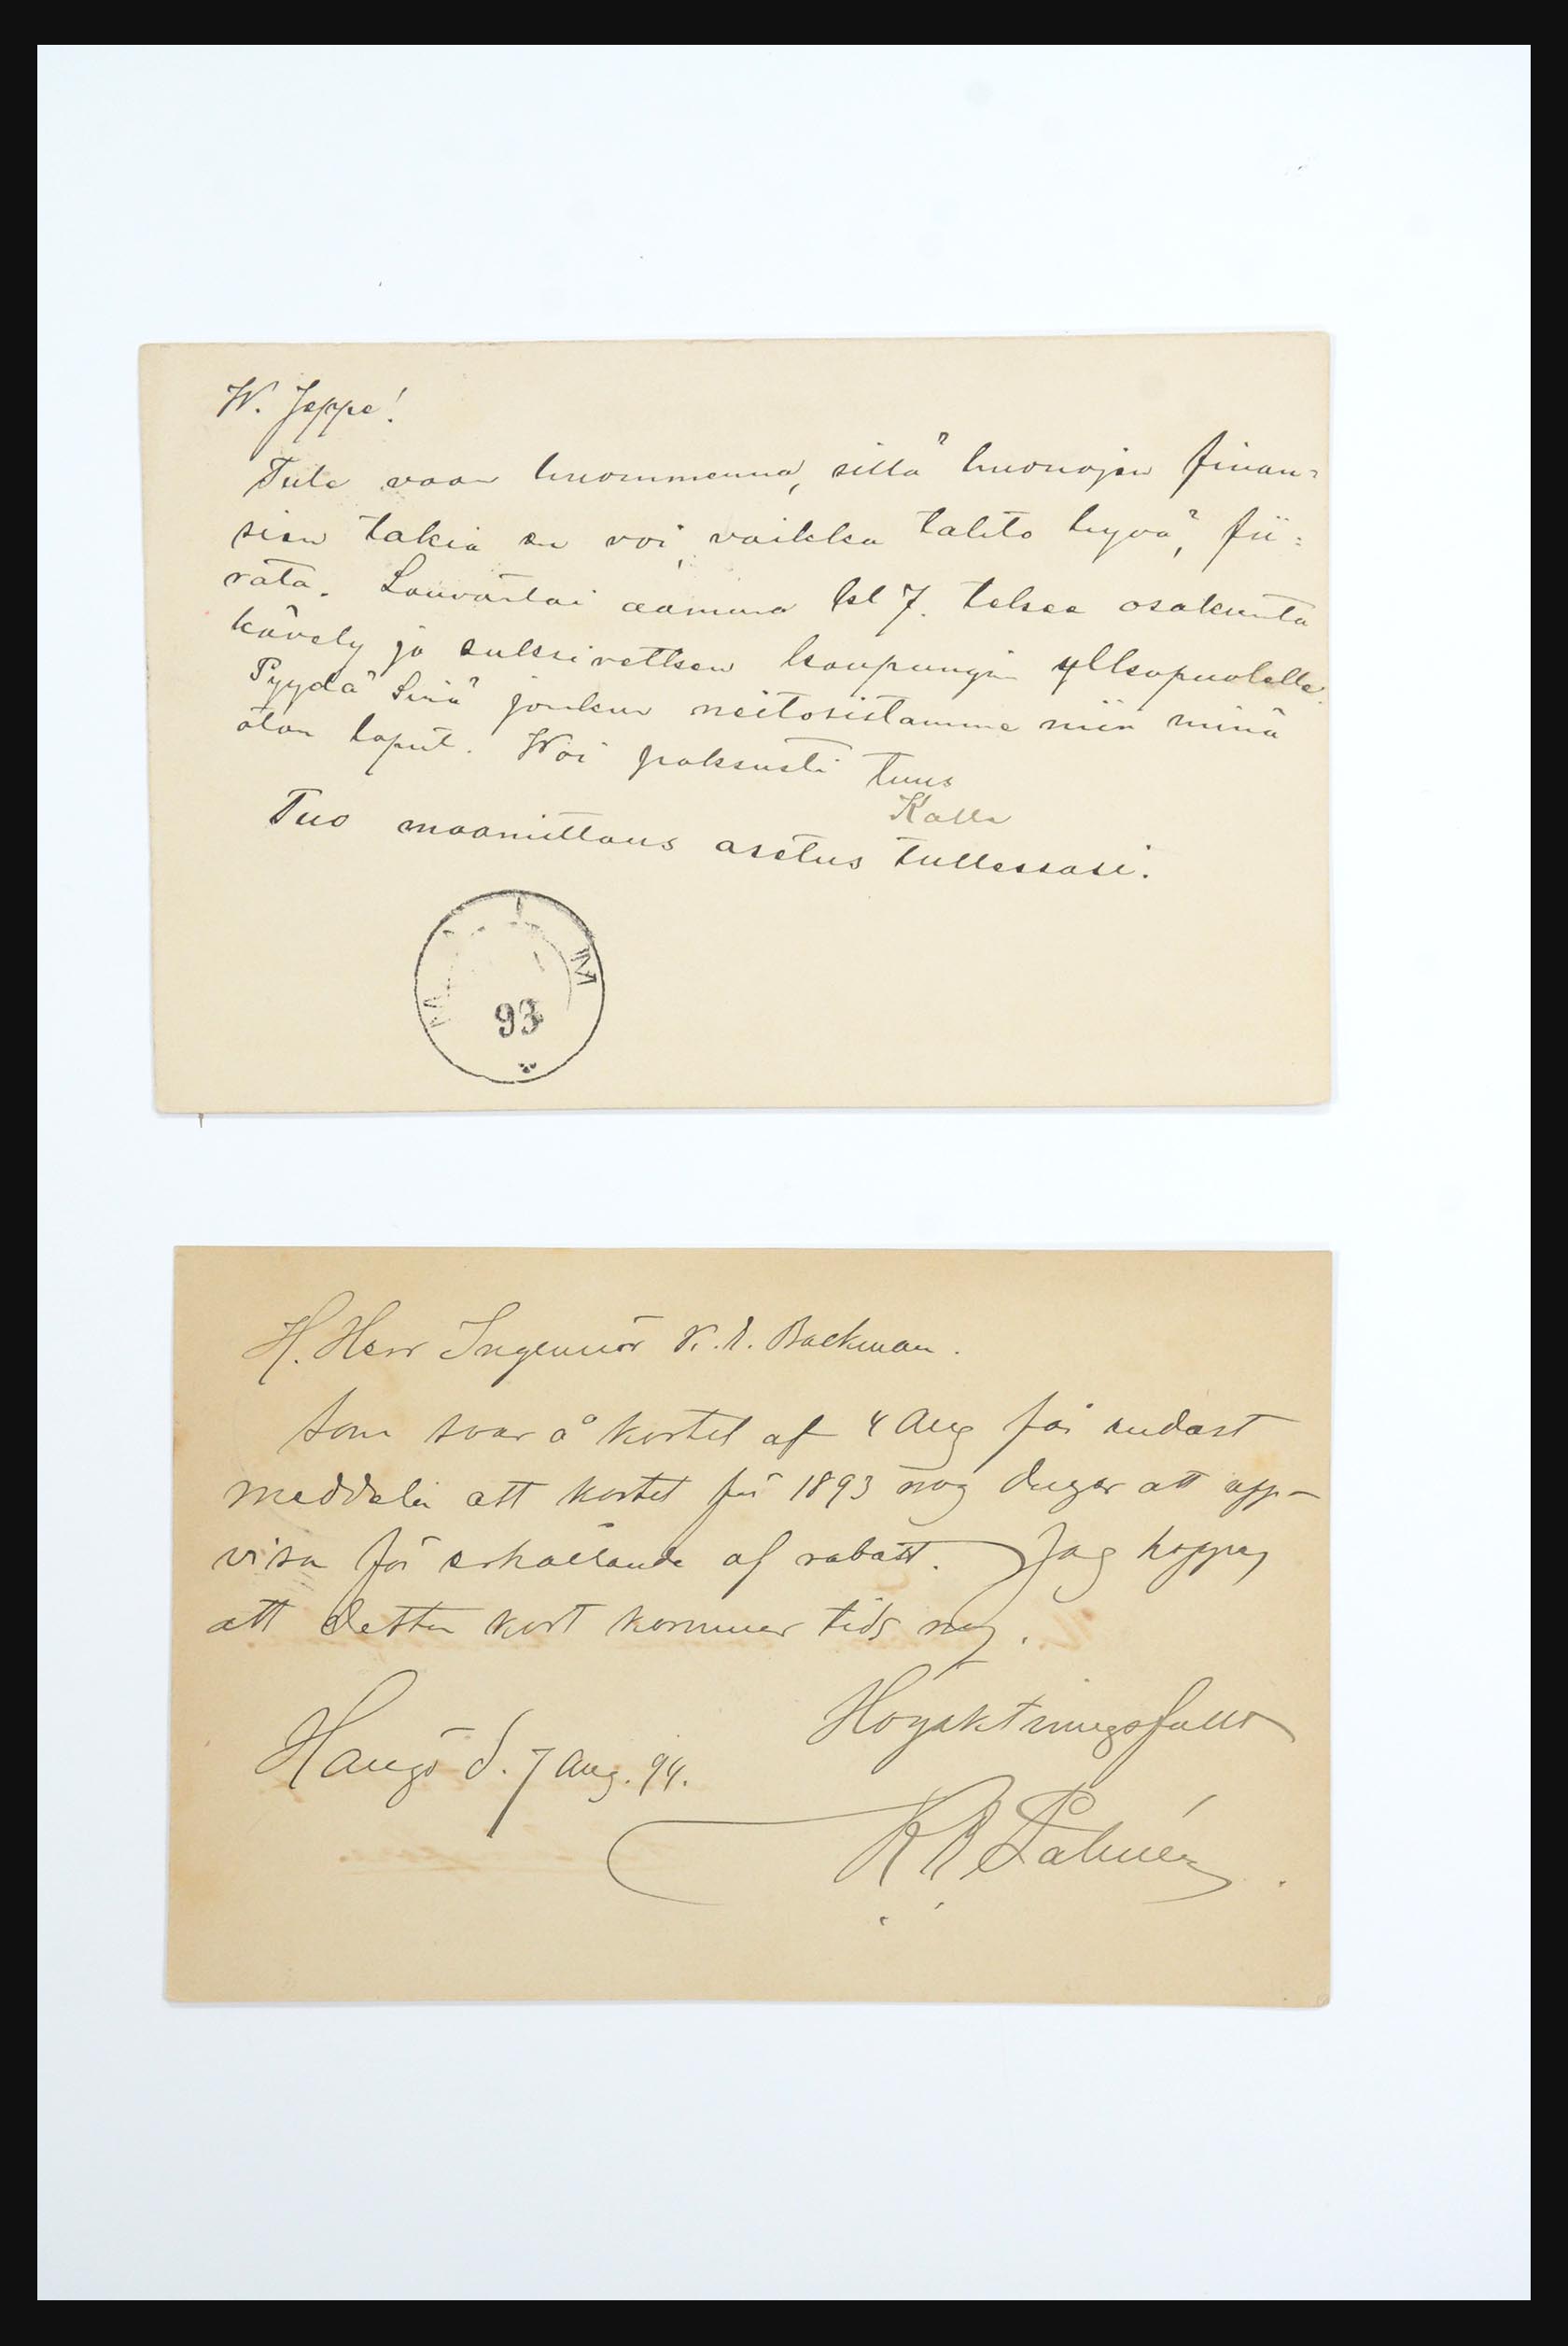 W. Jeppe!
Tule vaan huommenna, sillä huonojen finan=
sien takia en voi, vaikka tahto hyvä, fii=
rata. Lauvantai aamuna kl 7. tekee osakunta
kävely ja suksiretken kaupungin ulkopuolelle.
Pyydä Sinä jonkun neitosistamme niin minä
otan loput. Woi paksusti Tuus
Kalle
Tuo maamittaus asetus tullessasi.
M
93
H. Herr Ingeniör K. A. Backman.
Som svar å kortet af 4 Aug får endast
meddela att kortet för 1893 nog duger att upp-
visa för erhållande af rabatt. Jag hoppas
att detta kort kommer tids nog.
Högaktningsfullt
Hangö d. 7 Aug. 94.
K B Palmén